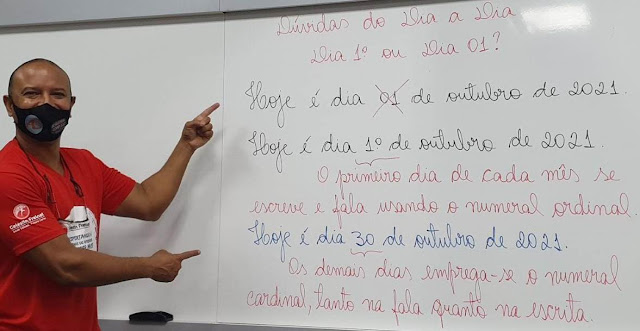 Dúvidas do Dia a Dia
Dia 1º ou Dia 01?
Hoje é dia 01 de outubro de 2021.
Hoje é dia 1º de outubro de 2021.
O primeiro dia de cada mês se
escreve e fala usando o numeral ordinal.
Hoje é dia 30 de outubro de 2021.
Os demais dias emprega-se o numeral
cardinal, tanto na fala quanto na escrita.